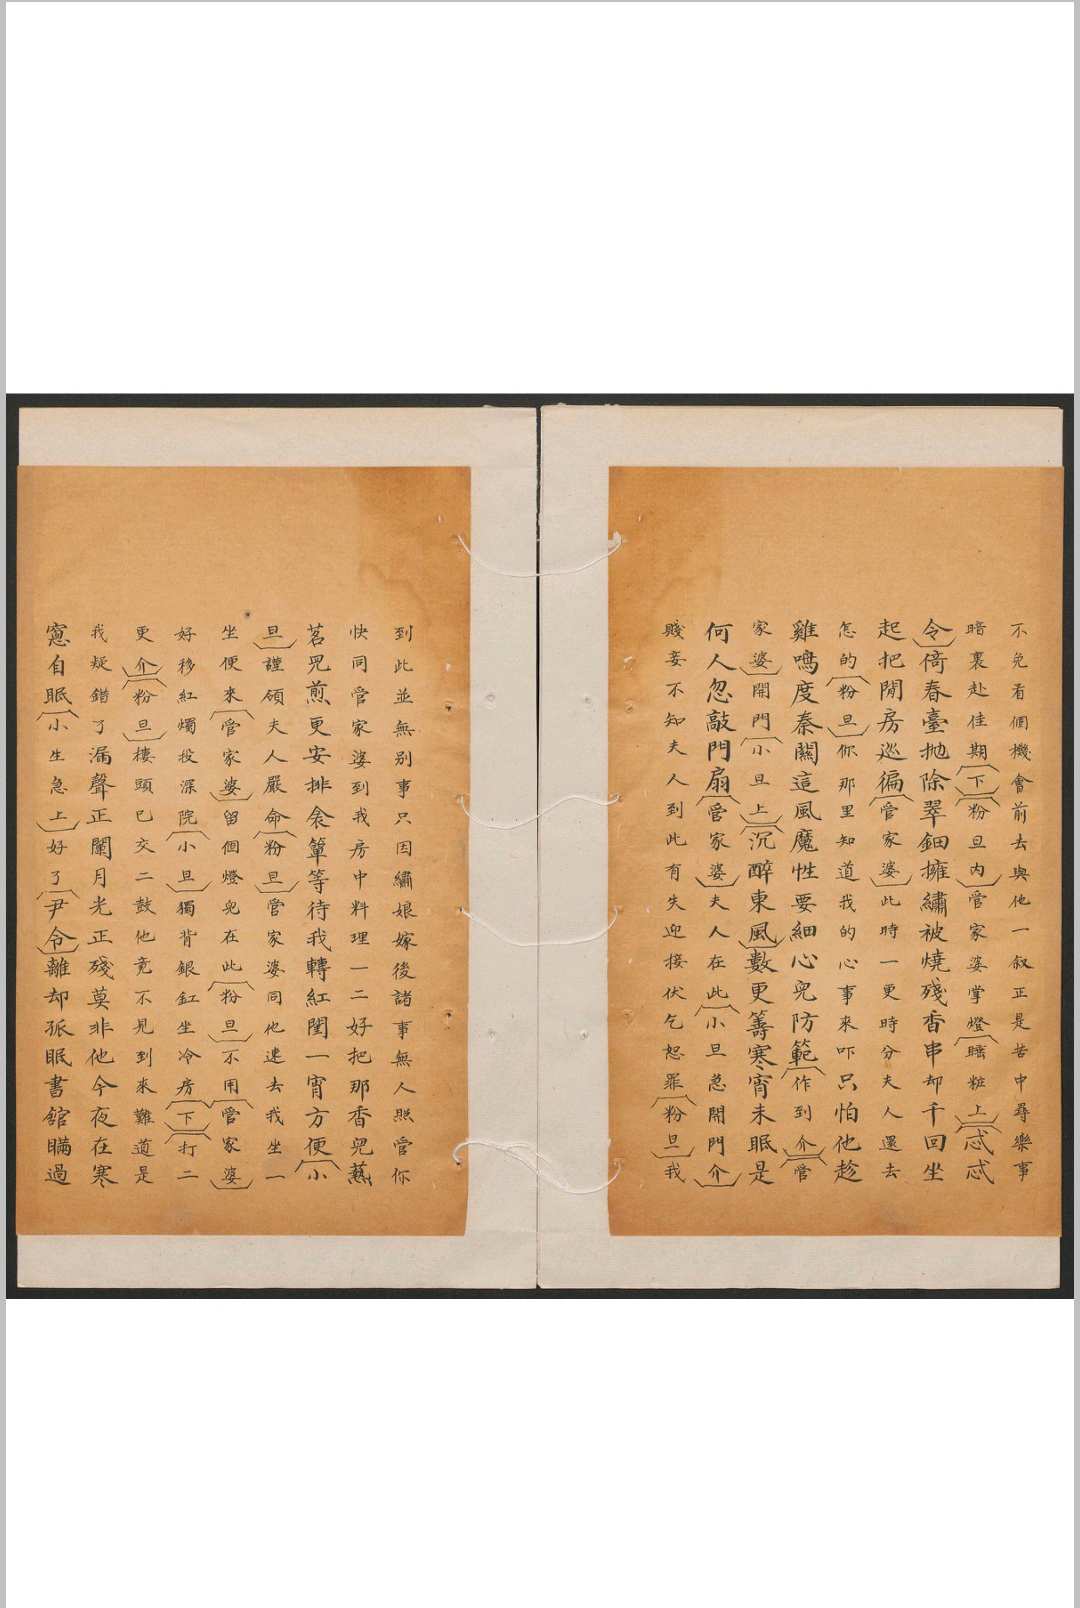 不免看個機會前去與他一叙正是苦中尋樂事
暗裏赴佳期(下)(粉旦内)管家婆掌燈(睡粧上)(忒忒
令)倚春臺抛除翠鈿擁繡被燒殘香串却千回坐
起把閒房巡徧(管家婆)此時一更時分夫人還去
怎的(粉旦)你那里知道我的心事來吓只怕他趁
雞鳴度秦關這風魔性要細心兒防範(作到介)(管
家婆)開門(小旦上)(沉醉東風)數更籌寒宵未眠是
何人忽敲門扇(管家婆)夫人在此(小旦急開門介)
賤妾不知夫人到此有失迎接伏乞恕罪(粉旦)我
到此並無别事只因繡娘嫁後諸事無人照管你
快同管家婆到我房中料理一二好把那香兒爇
茗兒煎更安排衾簟等待我轉紅閨一宵方便(小
旦)謹領夫人嚴命(粉旦)管家婆同他遣去我坐一
坐便來(管家婆)留個燈兒在此(粉旦)不用(管家婆)
好移紅燭投深院(小旦)獨背銀釭坐冷房(下)(打二
更介)(粉旦)樓頭已交二鼓他竟不見到來難道是
我疑錯了漏聲正闌月光正殘莫非他今夜在寒
窻自眠(小生急上)好了(尹令)離却孤眠書舘瞞過